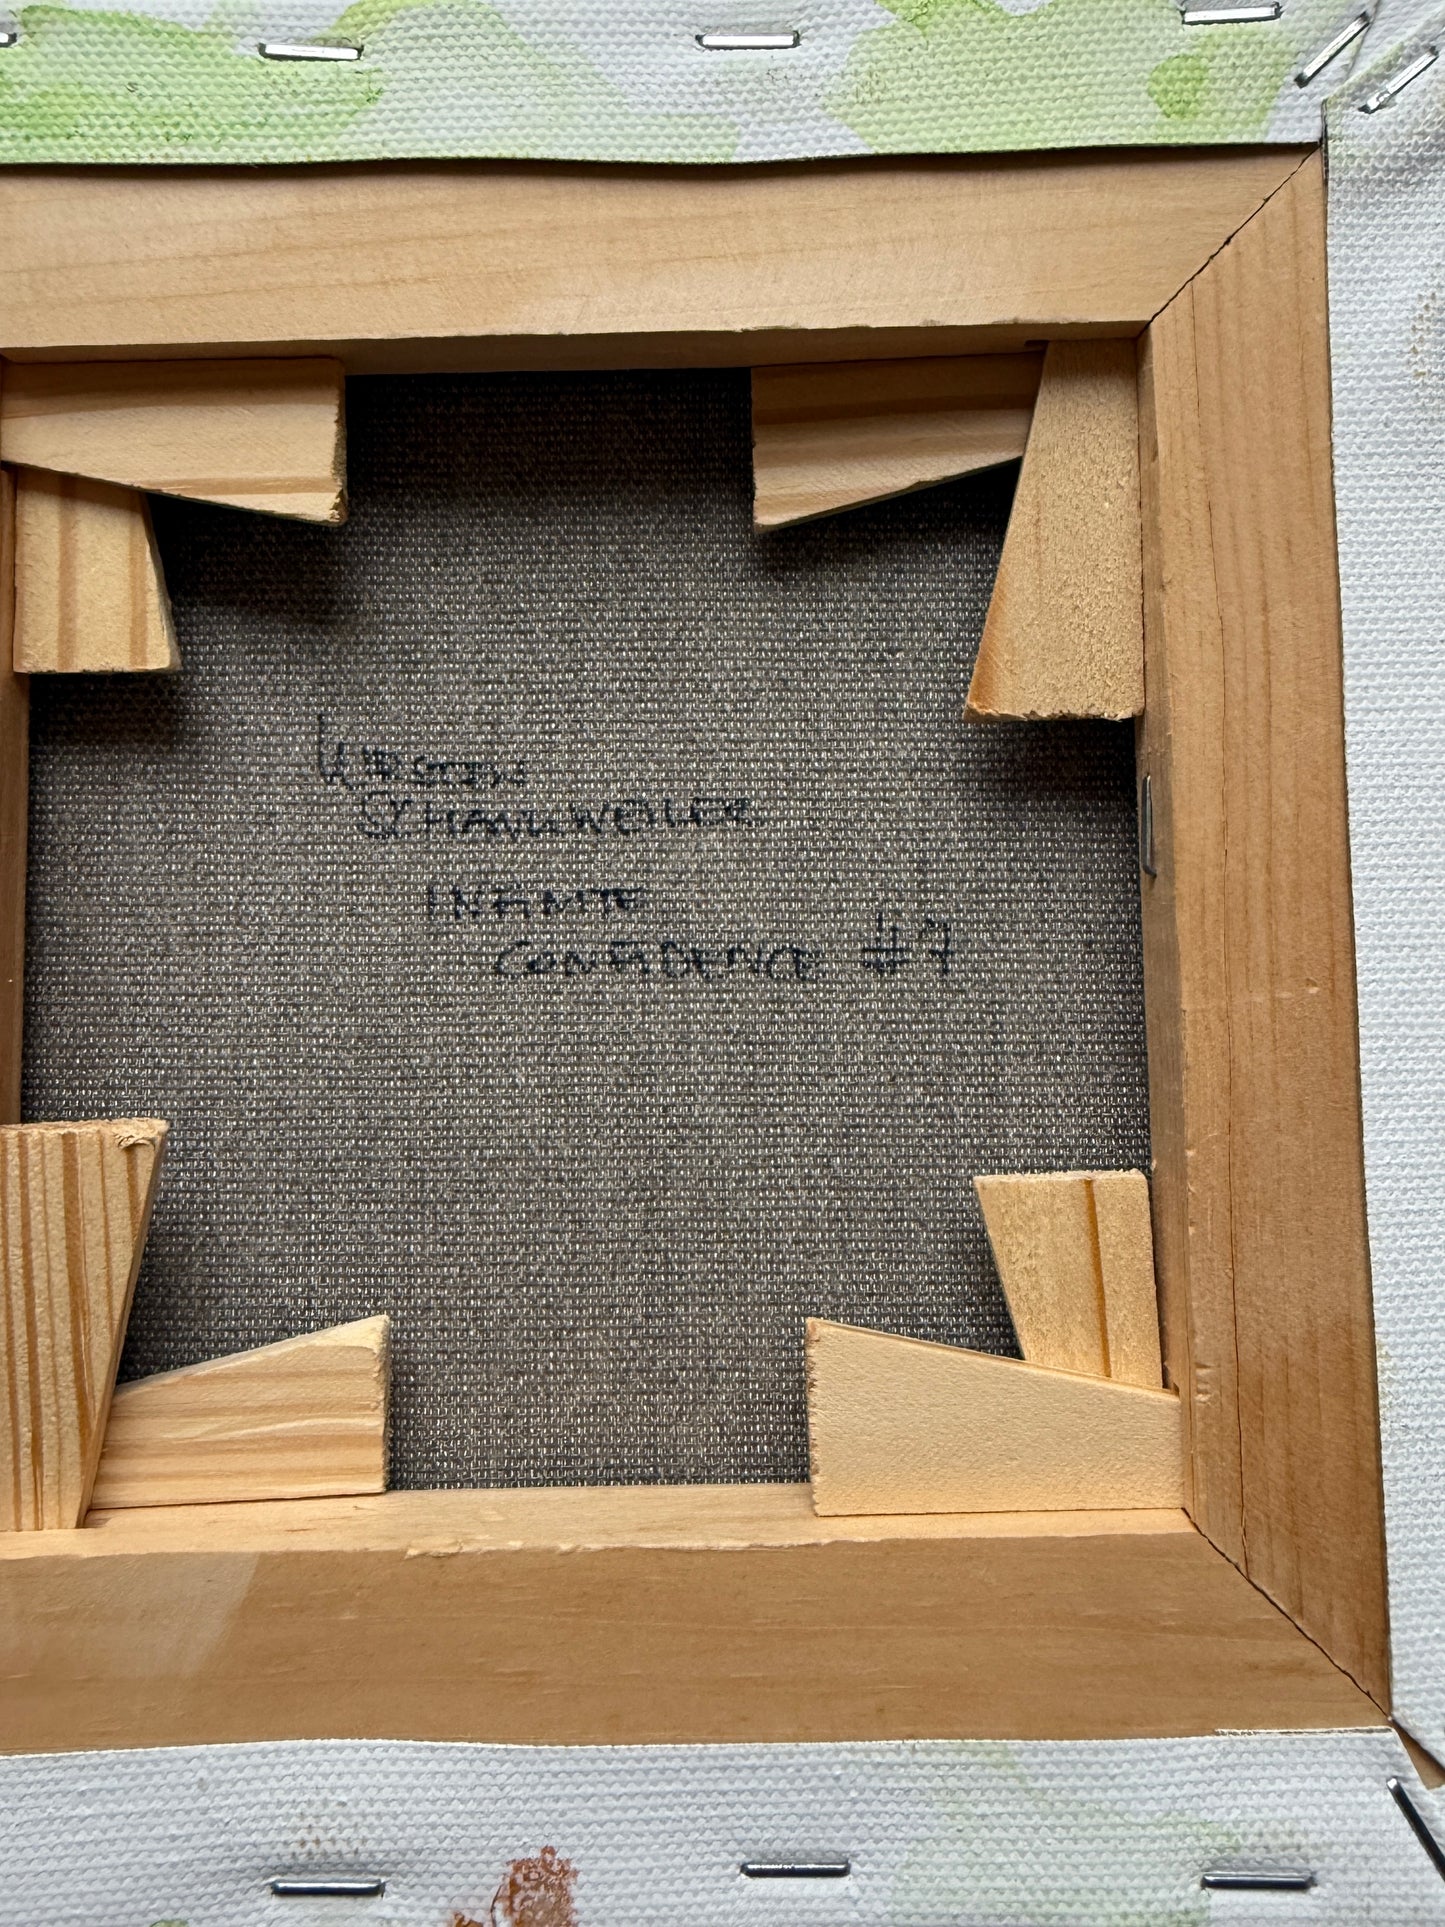 KIRSTEN
SCHANKWEILER
INFINITE
CONFIDENCE #7